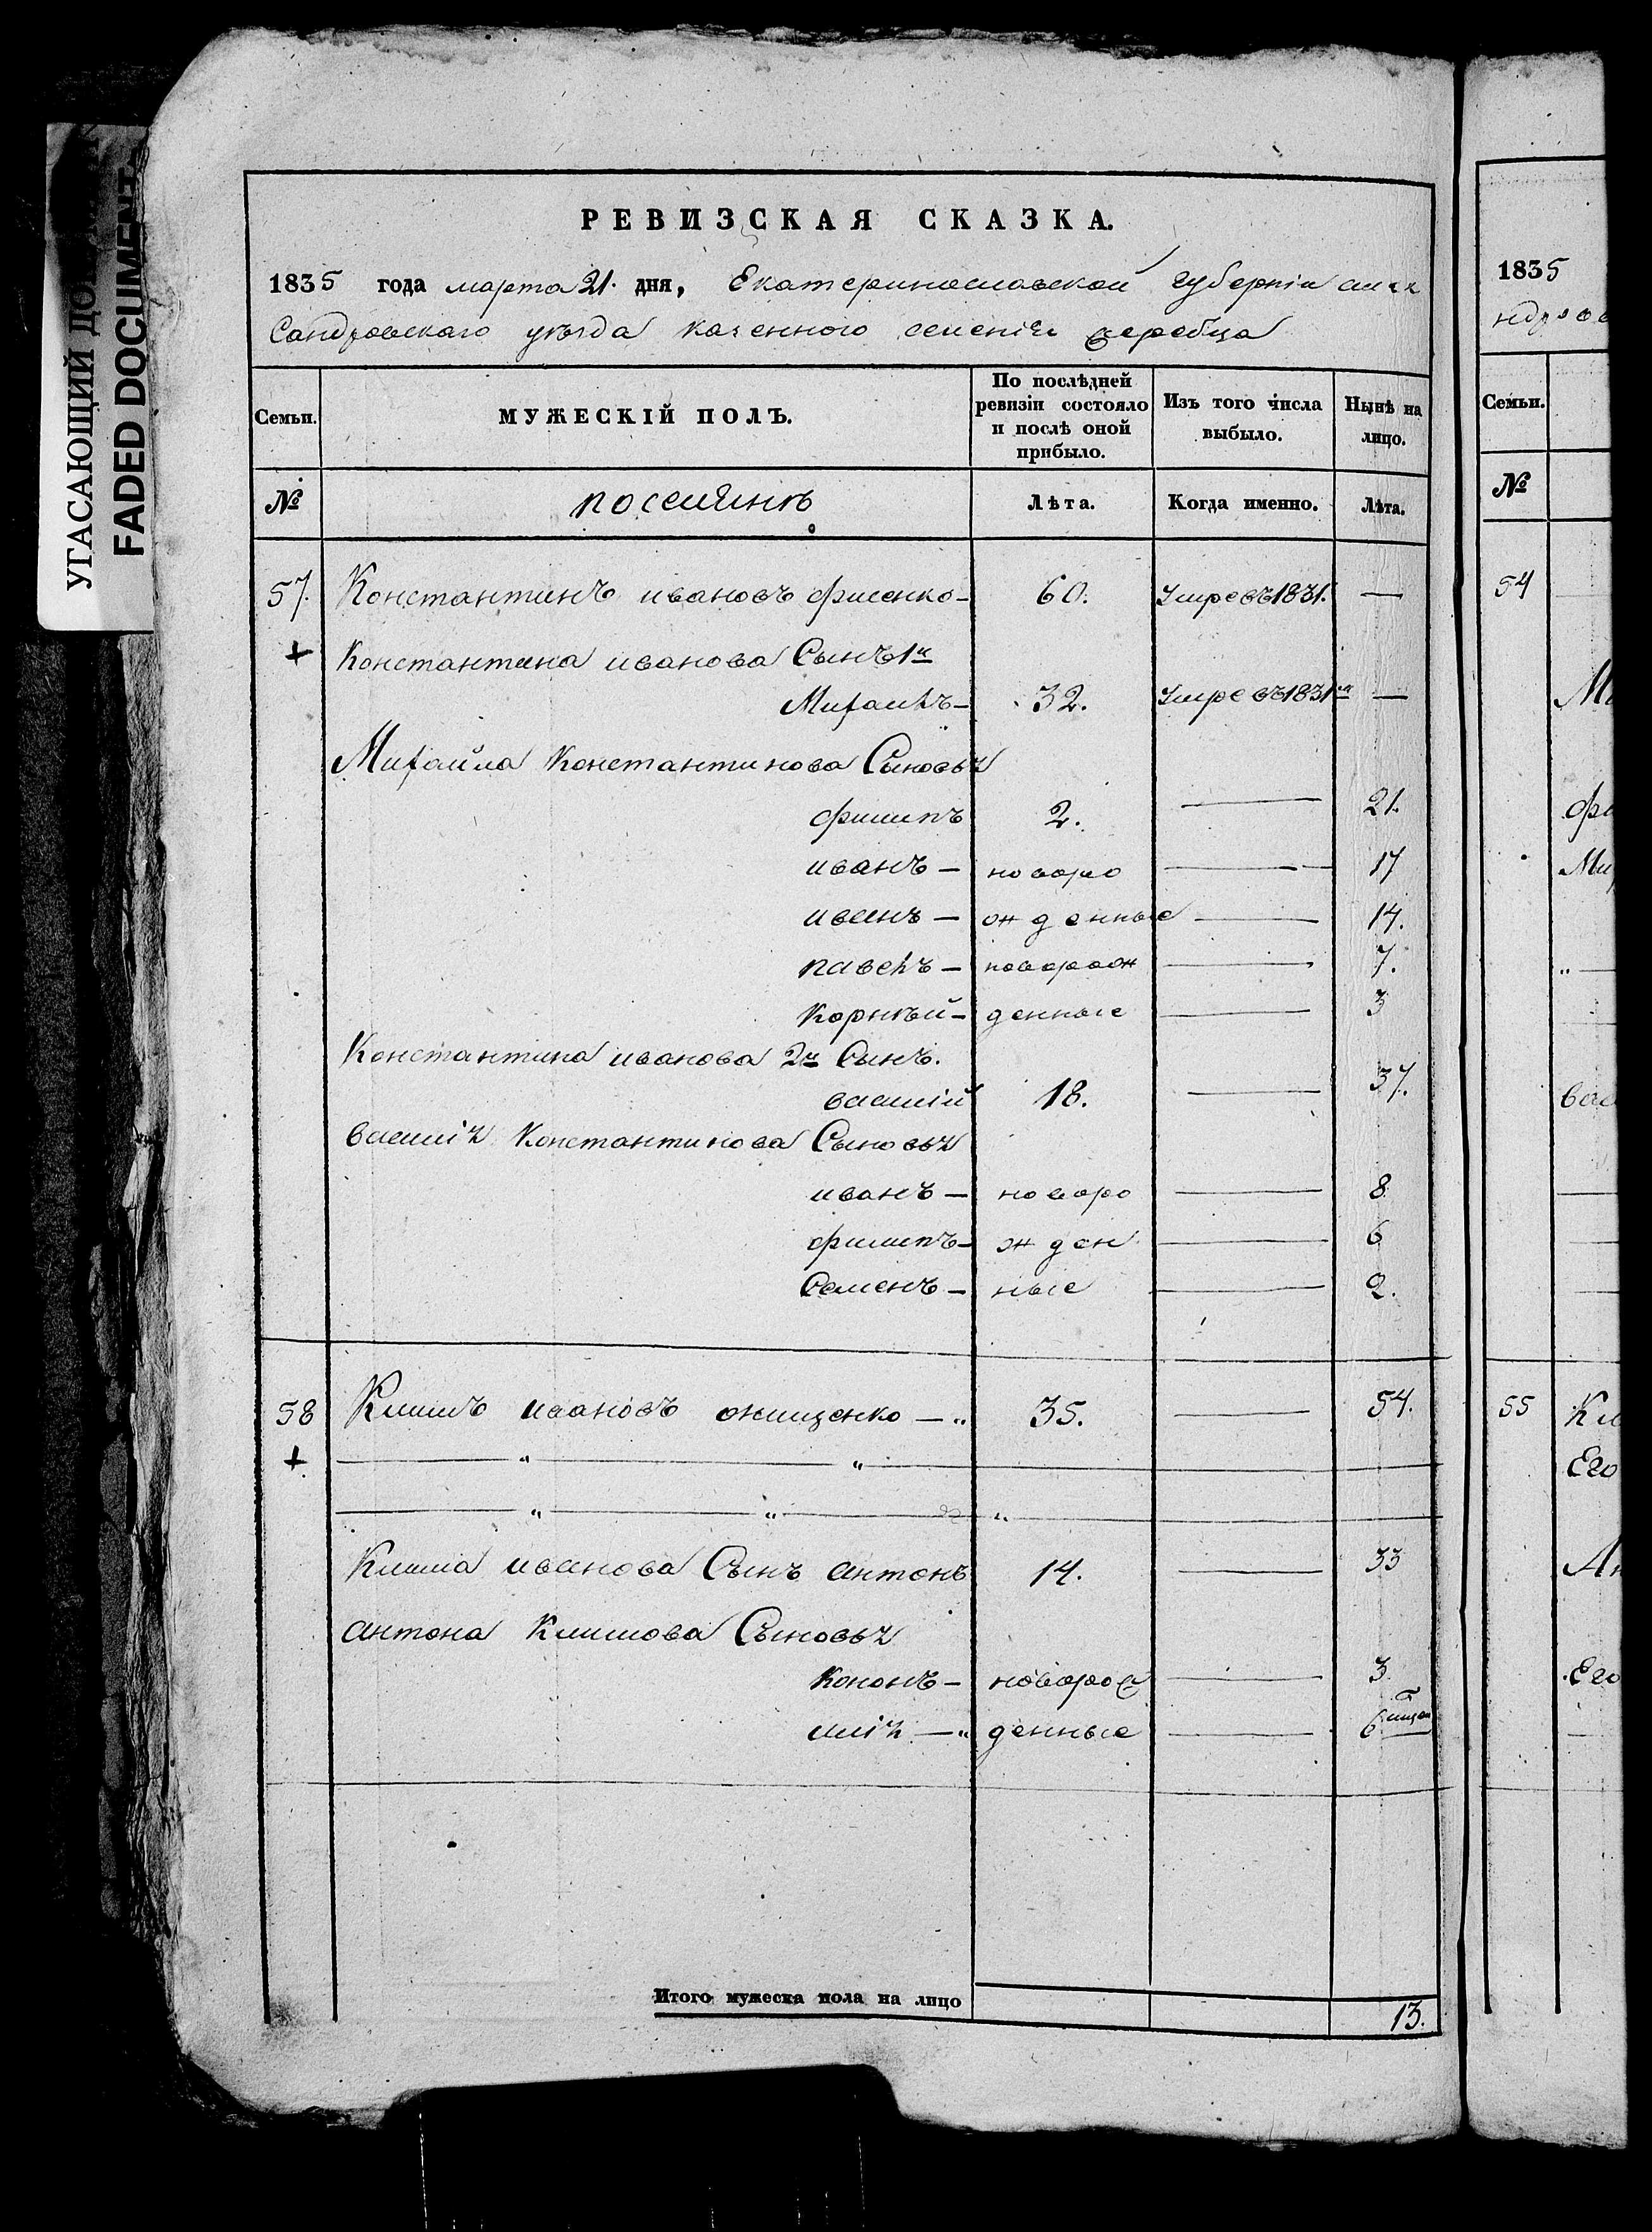 УГАСАЮЩИЙ
FADED DOCUMENT
РЕВИЗСКАЯ СКАЗКА.
1835 года марта 21. дня, Екатеринославской губерніи алек
сандровскаго уѣзда казенного селенія жеребца
Семьи. МУЖЕСКІЙ ПОЛЪ. По послѣдней ревизіи состояло и послѣ оной прибыло. Изъ того числа выбыло. Нынѣ на лицо.
№ поселянъ Лѣта. Когда именно. Лѣта.
57. Константинъ ивановъ фисенко — 60. Умре въ 1831. —
+ Константина иванова Сынъ 1й
Михаилъ — 32. Умре въ 1831м —
Михайла Константинова Сыновья
филипъ 2. — 21.
иванъ — новоро — 17
иванъ — жденные — 14.
павелъ —новорож — 7.
Корнѣй — денные — 3
Константина иванова 2й Сынъ.
василій 18. — 37.
василія Константинова Сыновья
иванъ — новоро — 8
филипъ — жден — 6
Семенъ — ные — 2.
58 Климъ ивановъ онищенко — „ 35. — 54.
+ — „ — „ —
— „ — „ — „
Клима иванова Сынъ антонъ 14. — 33
антона Климова Сыновья
Кононъ — новорож — 3
илія — „ денные — 6
Итого мужеска пола на лицо 13.
1835
Семьи.
№
54
55
Его
Его